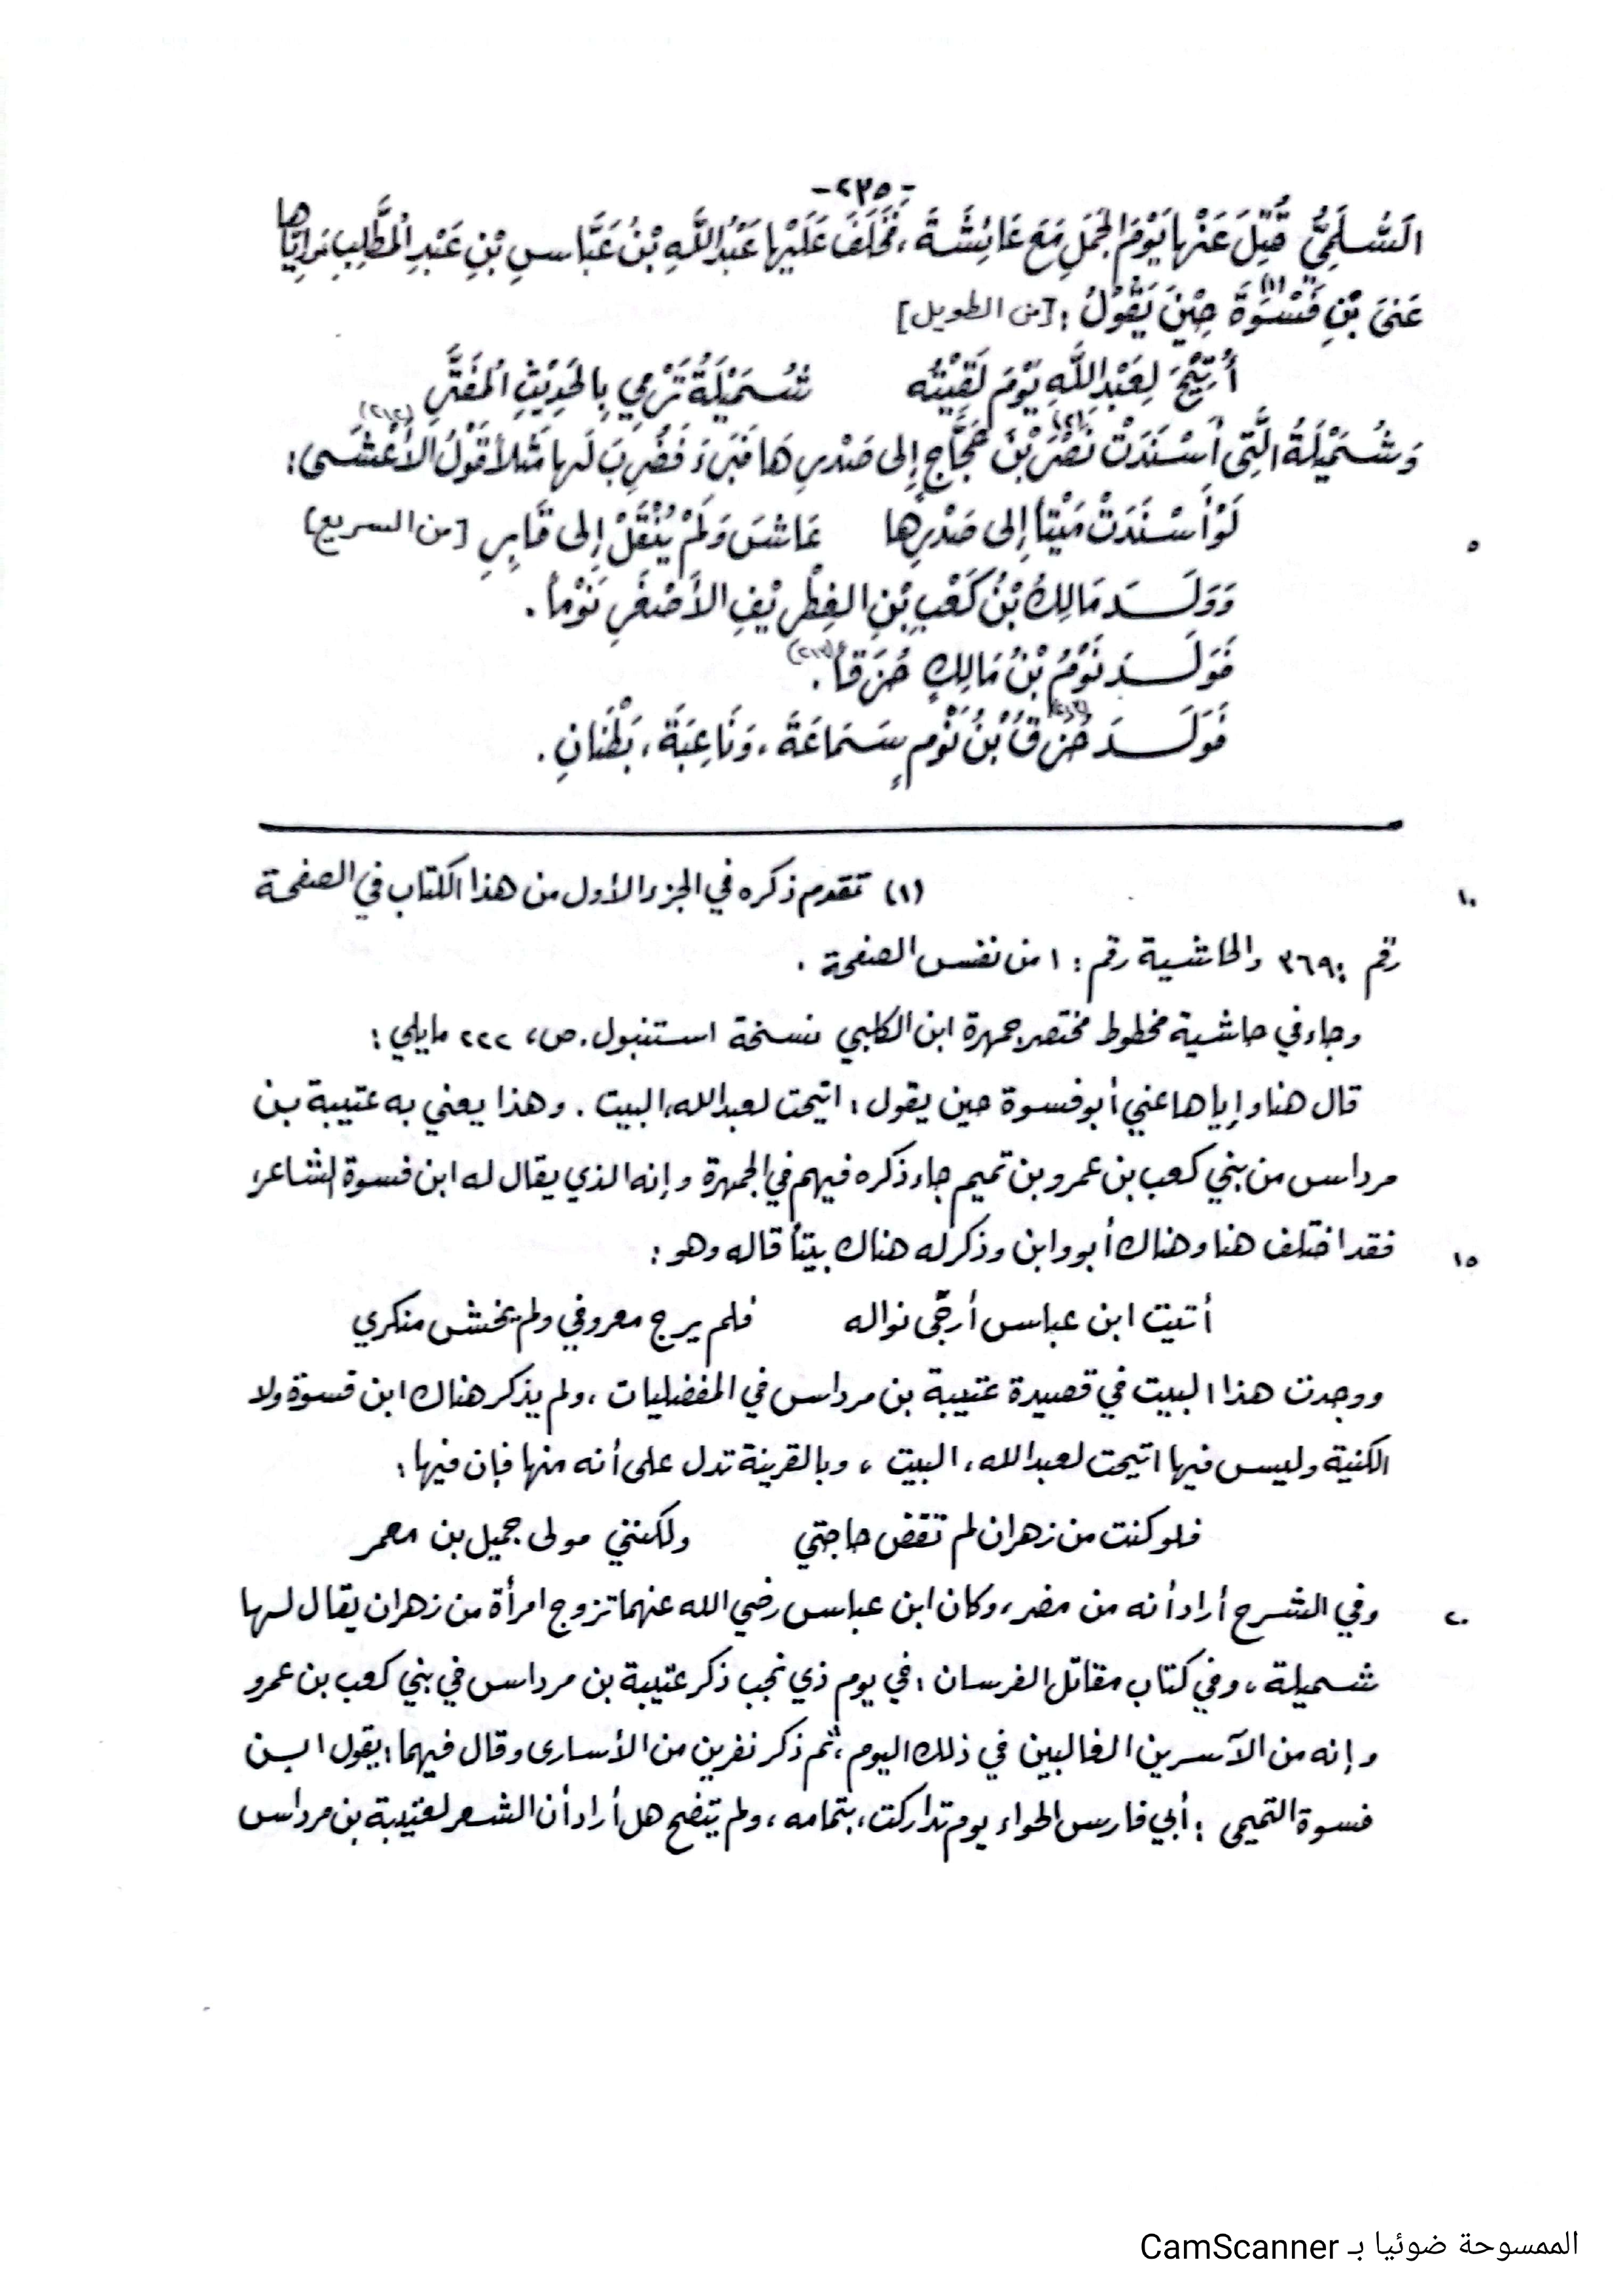 -٢٣٥-
السُّلَمِيُّ قُتِلَ عَنْهَا يَوْمَ الجَمَلِ مَعَ عَائِشَةَ، فَخَلَفَ عَلَيْهَا عَبْدُ اللَّهِ بْنُ عَبَّاسِ بْنِ عَبْدِ المُطَّلِبِ وَإِيَّاهَا
عَنَى بْنِ فَسْوَةَ (١) حِيْنَ يَقُوْلُ: [من الطويل]
أُتِيْحَ لِعَبْدِ اللَّهِ يَوْمَ لَقِيْتُه شُمَيْلَةُ تَرْمِي بِالحَدِيْثِ المُفَتَّرِ
وَشُمَيْلَةُ الَّتِي أَسْنَدَتْ نَصْرَ بْنَ حَجَّاجٍ (٢) إِلى صَدْرِهَا فَبَرَءَ فَضُرِبَ لَها مَثَلاً قَوْلُ الأَعْشَى:
لَوْ أَسْنَدَتْ مَيْتاً إِلى صَدْرِها عَاشَ وَلَمْ يُنْقَلْ إِلى قَابِرِ [من السريع]
٥
وَوَلَـــدَ مَالِكُ بْنُ كَعْبِ بْنِ الغِطْرِيْفِ الأَصْغَرِ نَوْماً.
فَوَلَـــدَ نَوْمُ بْنُ مَالِكٍ حُزَقاً.
فَوَلَـــدَ حُزَقُ بْنُ نَوْمٍ سَمَاعَةَ، وَنَاعِبَةَ، بَطْنَانِ.
(١) تقدم ذكره في الجزء الأول من هذا الكتاب في الصفحة
١٠
رقم: ٣٦٩ والحاشية رقم: ١ من نفس الصفحة.
وجاء في حاشية مخطوط مختصر جمهرة ابن الكلبي نسخة استنبول. ص، ٢٢٢ مايلي:
قال هنا وإياها عني أبو فسوة حين يقول: اتيحت لعبد الله، البيت. وهذا يعني به عتيبة بن
مرداس من بني كعب بن عمرو بن تميم جاء ذكره فيهم في الجمهرة وإنه الذي يقال له ابن فسوة الشاعر،
فقد اختلف هنا وهناك أبو وابن وذكر له هناك بيتاً قاله وهو:
١٥
أتيت ابن عباس أرجّى نواله فلم يرج معروفي ولم يخش منكري
ووجدت هذا البيت في قصيدة عتيبة بن مرداس في المفضليات، ولم يذكر هناك ابن فسوة ولا
الكنية وليس فيها اتيحت لعبد الله، البيت، وبالقرينة تدل على أنه منها فإن فيها:
فلو كنت من زهران لم تقض حاجتي ولكنني مولى جميل بن معمر
وفي الشرح أراد أنه من مضر، وكان ابن عباس رضي الله عنهما تزوج امرأة من زهران يقال لها
٢٠
شميلة، وفي كتاب مقاتل الفرسان: في يوم ذي نجب ذكر عتيبة بن مرداس في بني كعب بن عمرو
وإنه من الآسرين الغالبين في ذلك اليوم، ثم ذكر نفرين من الأسارى وقال فيهما: يقول ابن
فسوة التميمى: أبي فارس الحواء يوم تداركت، بتمامه، ولم يتضح هل أراد أن الشعر لعتيبة بن مرداس
الممسوحة ضوئيا بـ CamScanner